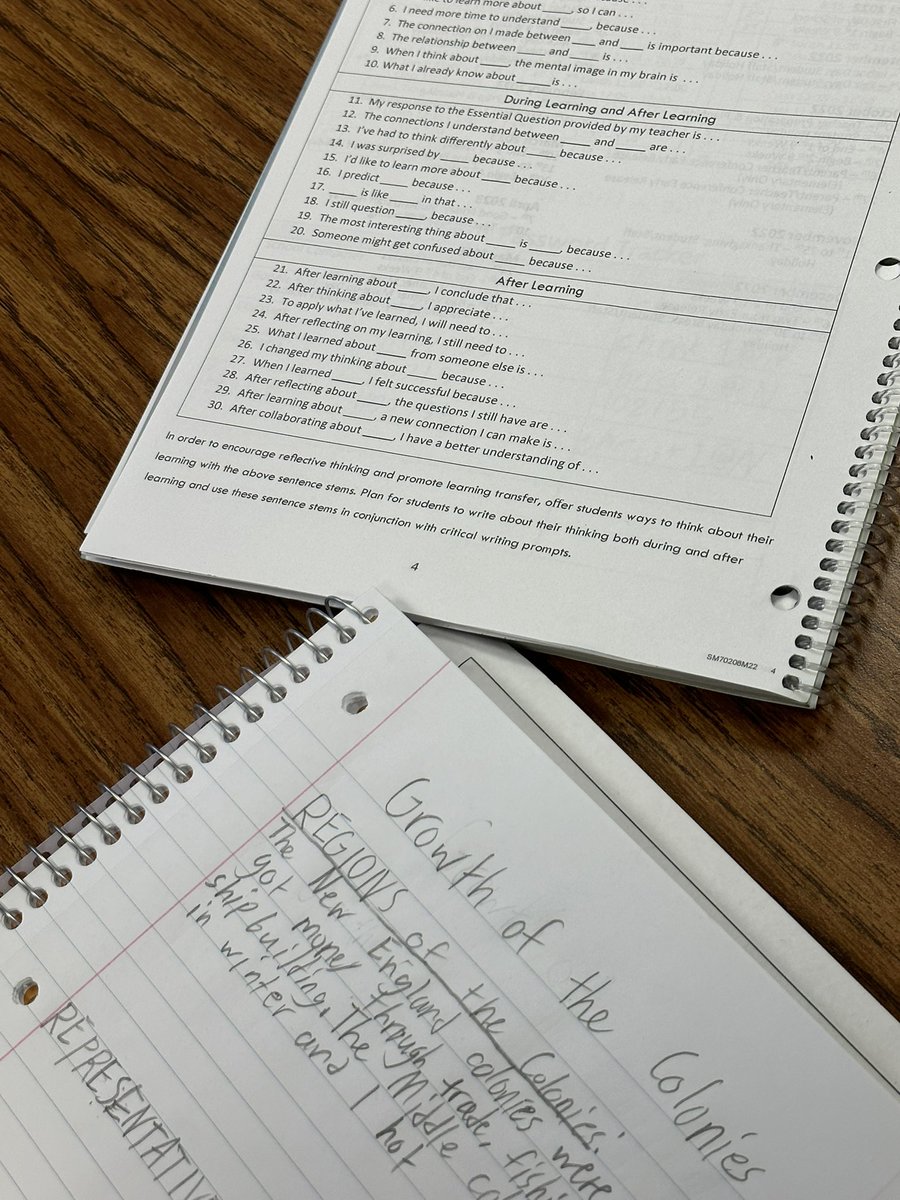 to learn more about _____, so I can . . .
6. I need more time to understand _____, because . . .
7. The connection I made between _____ and _____ is important because . . .
8. The relationship between _____ and _____ is . . .
9. When I think about _____, the mental image in my brain is . . .
10. What I already know about _____ is . . .
During Learning and After Learning
11. My response to the Essential Question provided by my teacher is . . .
12. The connections I understand between _____ and _____ are . . .
13. I've had to think differently about _____ because . . .
14. I was surprised by _____ because . . .
15. I'd like to learn more about _____ because . . .
16. I predict _____ because . . .
17. _____ is like _____ in that . . .
18. I still question _____, because . . .
19. The most interesting thing about _____ is _____, because . . .
20. Someone might get confused about _____ because . . .
After Learning
21. After learning about _____, I conclude that . . .
22. After thinking about _____, I appreciate . . .
23. To apply what I've learned, I will need to . . .
24. After reflecting on my learning, I still need to . . .
25. What I learned about _____ from someone else is . . .
26. I changed my thinking about _____ because . . .
27. When I learned _____, I felt successful because . . .
28. After reflecting about _____, the questions I still have are . . .
29. After learning about _____, a new connection I can make is . . .
30. After collaborating about _____, I have a better understanding of . . .
In order to encourage reflective thinking and promote learning transfer, offer students ways to think about their
learning with the above sentence stems. Plan for students to write about their thinking both during and after
learning and use these sentence stems in conjunction with critical writing prompts.
4
SM70208M22 4
Growth of the Colonies
REGIONS of the Colonies:
The New England colonies were
got money through trade, fishi
shipbuilding. The Middle co
in winter and hot
REPRESENTATIV